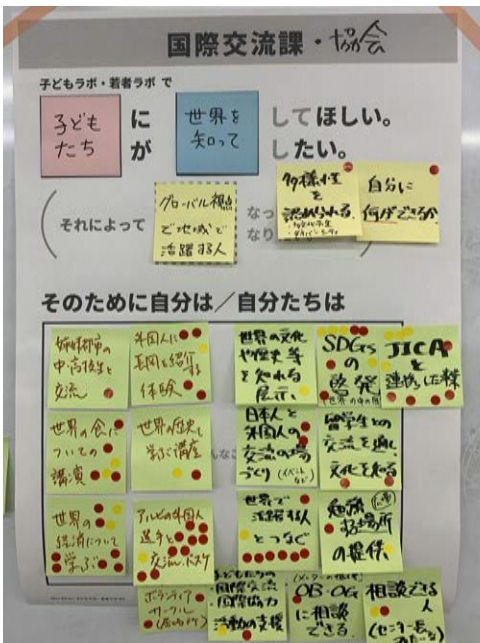 国際交流課・協会
子どもラボ・若者ラボ で
子ども
たち
に
が
世界を
知って
してほしい。
したい。
それによって
グローバル視点
で地域で
活躍する人
なっ
なり
多様性
を
認められる
・多文化共生
・ダイバーシティ
自分に
何ができるか
そのために自分は／自分たちは
姉妹都市の
中・高校生と
交流
外国人に
長岡を紹介する
体験
世界の文化
や歴史等
を知れる
展示
SDGs
の
啓発
JICA
と
連携した授業
世界の食に
ついての
講演
世界の歴史を
学ぶ講座
日本人と
外国人の
交流の場
づくり(イベント
など)
留学生との
交流を通し
文化を知る
世界の
経済について
学ぶ
アルビの外国人
選手と
交流、バスケ
世界で
活躍する人
とつなぐ
勉強
する場所
の提供
ボランティア
サークル
子どもたちの
国際交流
国際協力
活動の支援
OB・OG
に相談
できる
相談できる
人
(センター長